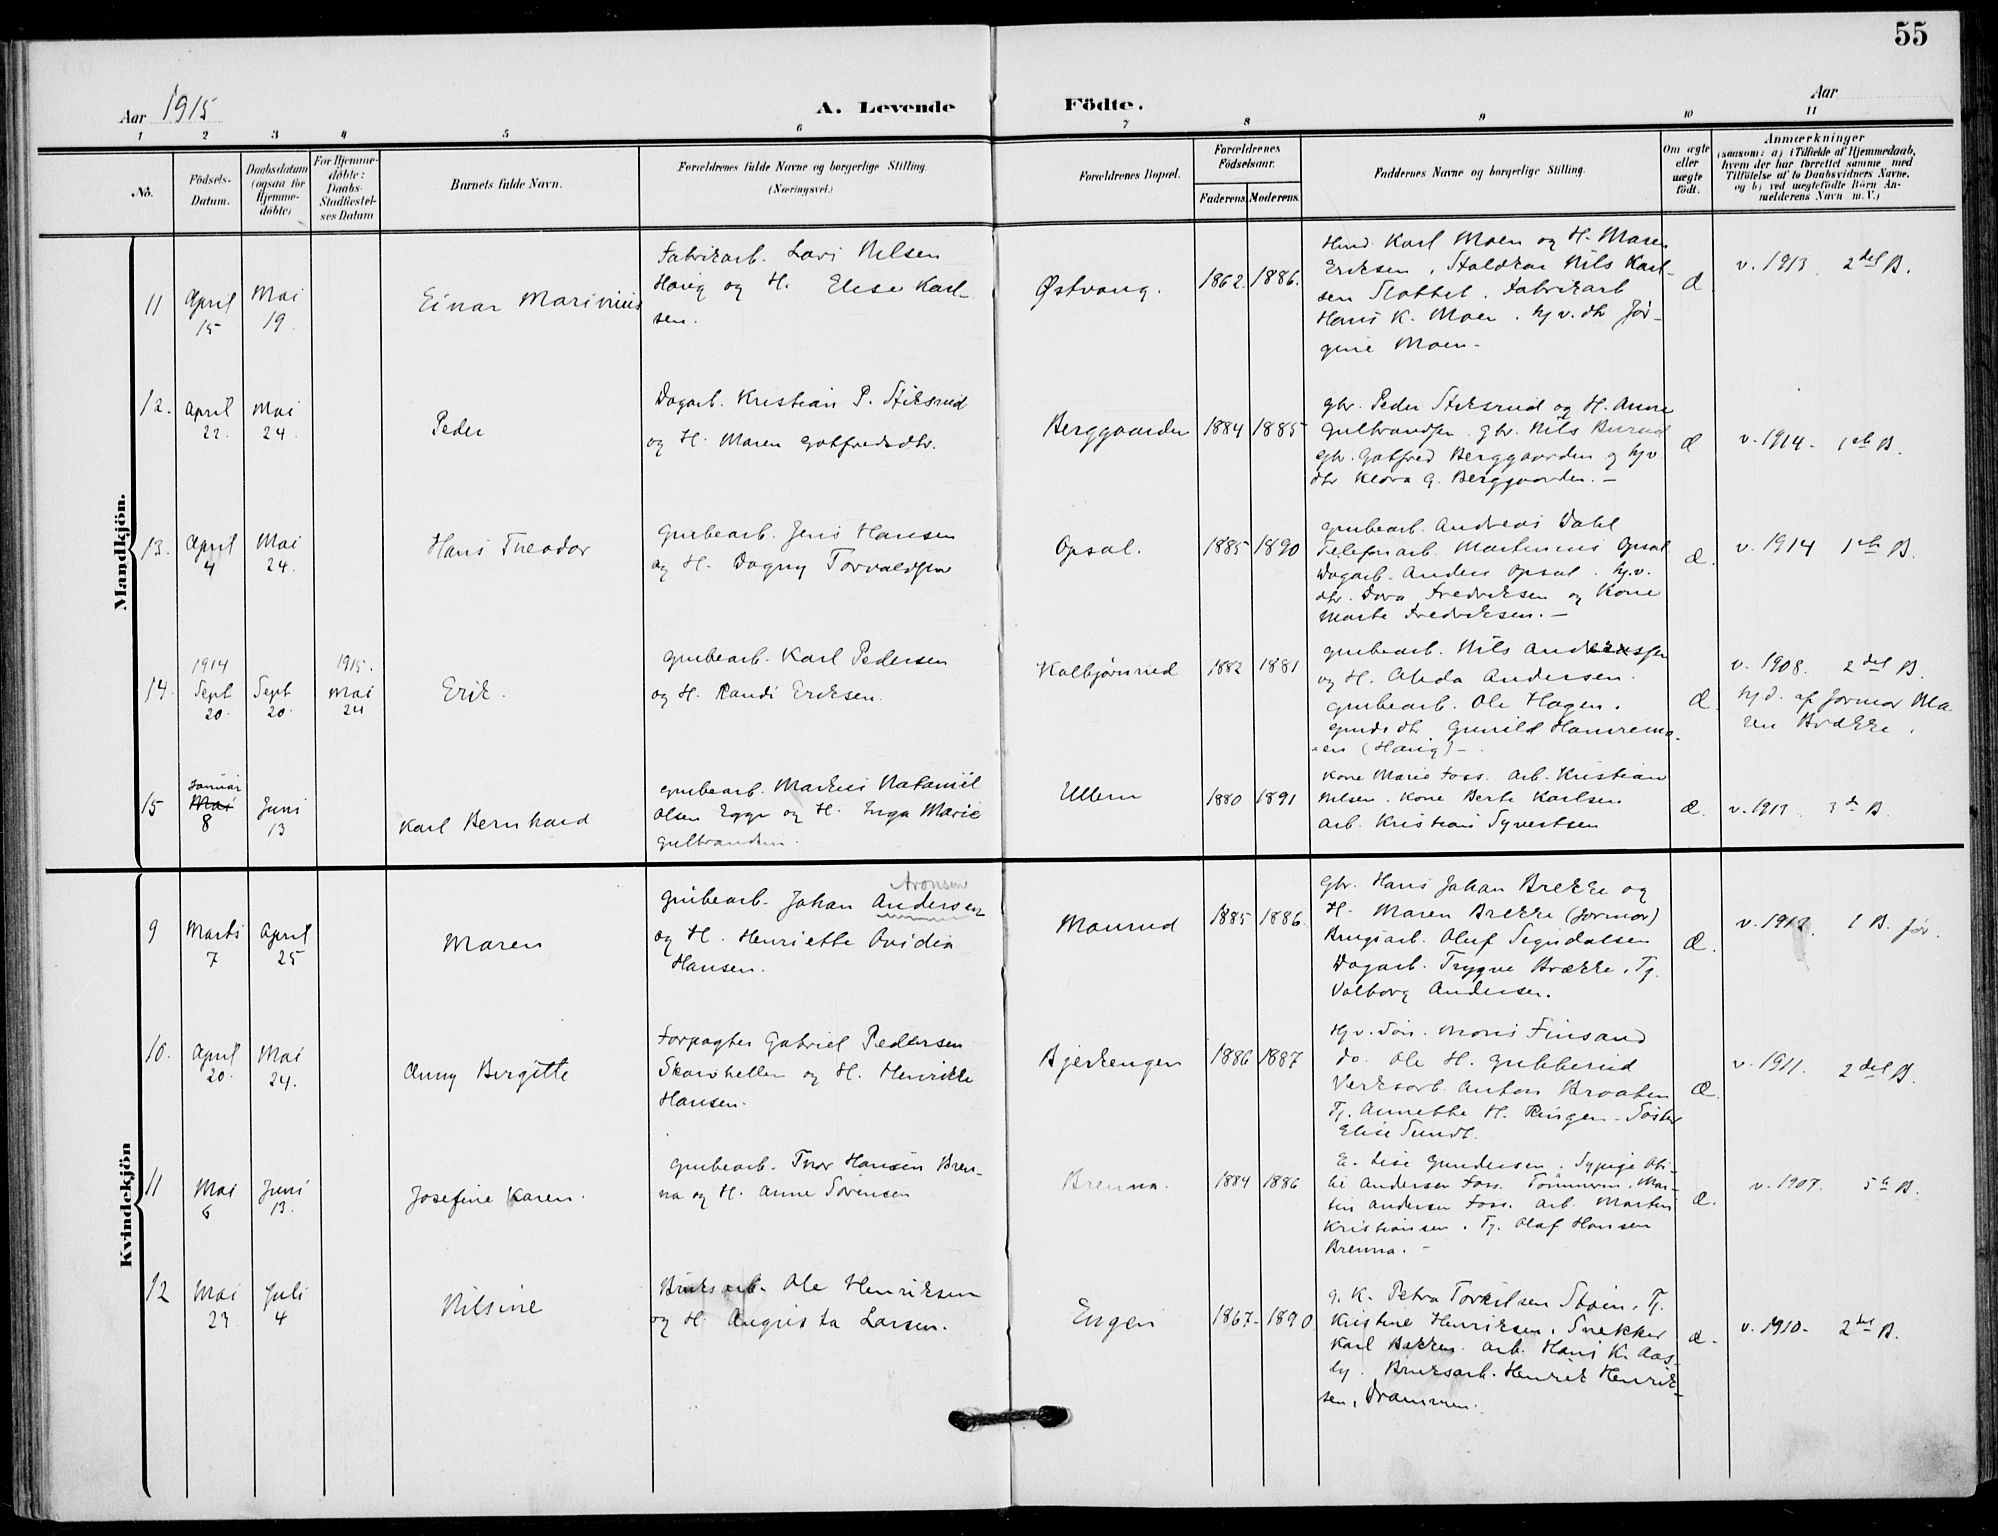 55
Aar 1915
A. Levende Födte.
Aar
1 2 3 4 5 6 7 8 9 10 11
No.
Födsels-
Datum.
Daabsdatum
(ogsaa for
Hjemme-
döbte)
For Hjemme-
döbte:
Daabs-
Stadfæstel-
ses Datum
Barnets fulde Navn.
Forældrenes fulde Navne og borgerlige Stilling
(Næringsvei.)
Forældrenes Bopæl.
Forældrenes
Födselsaar.
Faderens. Moderens.
Faddernes Navne og borgerlige Stilling.
Om ægte
eller
uægte
födt.
Anmærkninger
(saasom: a) i Tilfælde af Hjemmedaab,
hvem der har forrettet samme, med
Tilföielse af to Daabsvidners Navne,
og b) ved uægtefödte Börn An-
melderens Navn m. V.)
Mandkjön.
11
April
15
Mai
19.
Einar Marinius
Fabrikarb. Lavi Nilsen
Haug og H. Elise Karl-
sen.
Østvang.
1862. 1886.
Karl Moen og H. Maren
Eriksen, Staldkar Nils Karl-
sen Slottet. Fabrikarb
Hans K. Moen. hjv. dtr Jør-
gine Moen-
Æ
v. 1913. 2det B.
12.
April
22.
Mai
24.
Peder
Dagarb. Kristian P. Stiksrud
og H. Maren Gotfredsdtr.
Berggaarden
1884 1885
gbr. Peder Stiksrud og H. Anne
Gulbrandsen. gbr. Nils Burud
gbr. Gotfred Berggaarden og hjv
dtr Klara G. Berggaarden. -
Æ
v. 1914- 1ste B.
13.
April
4
Mai
24.
Hans Theodor
Grubearb. Jens Hansen
og H. Dagny Torvaldsen
Opsal.
1885 1890
grubearb. Andreas Dahl
Telefonarb. Martinius Opsal
Dagarb. Anders Opsal. hjv.
dtr. Dora Fredriksen og Kone
Marte Fredriksen. -
Æ.
v. 1914 1ste B.
14.
1914
Sept
20.
Sept
20.
1915.
Mai
24
Erik.
grubearb. Karl Pedersen
og H. Randi Eriksen.
Kolbjørnsrud
1882 1881
grubearb. Nils Andersen
og H. Alida Andersen.
grubearb. Ole Hagen.
gmds dtr. Gunild Hamremo-
en (Haug) -
Æ.
v. 1908. 2det B.
hjd. af Jormor Ma-
ren Brække.
15
Januar
Mai
8
Juni
13
Karl Bernhard
grubearb. Markus Nataniel
Olsen Egge og H. Inga Marie
Gulbrandsen.
Ullern
1880 1891
Kone Marie Foss. Arb. Kristian
Nilsen. Kone Berte Karlsen
Arb. Kristian Syvertsen
Æ.
v. 1913. 3de B.
Kvindekjön
9
Marts
7
April
25
Maren
Aronsen
grubearb. Johan Andersen
og H. Henriette Ovidia
Hansen.
Monsrud
1885 1886.
Gbr. Hans Johan Brekke og
H. Maren Brekke (Jormor)
Brugsarb. Oluf Sigidalsen
Dagarb. Trygve Brække. Tj.
Valborg Andersen.
Æ.
v. 1912. 1 B. før.
10.
April
20.
Mai
24.
Anny Birgitte
Forpagter Gabriel Pedersen
Skarshellen og H. Henrikke
Hansen.
Bjerkengen
1886 1887
Hjv. søn. Moris Finsand
do. Ole H. Gubberud
Verksarb. Anton Braaten
Tj. Annette H. Ringen. Søster
Elise Sundt.
Æ.
v. 1911. 2det B.
11
Mai
6
Juni
13.
Josefine Karen.
grubearb. Thor Hansen Bren-
na og H. Anne Sørensen
Brenna.
1884 1886
E. Lise Gundersen. Sypige Oti-
lie Andersen Foss. Tømmerm. Mar-
tin Andersen Foss. Arb. Martin
Kristiansen. Tj. Olaf Hansen
Brenna. -
Æ.
v. 1907. 5te B.
12
Mai
23
Juli
4
Nilsine
Bruksarb. Ole Henriksen
og H. Augusta Larsen.
Engen
1867- 1890
g. K. Petra Torkilsen Støen. Tj.
Kristine Henriksen. Snekker
Karl Bakken. Arb. Hans K. Aas-
by. Bruksarb. Henrik Henrik-
sen, Drammen.
Æ-
v. 1910- 2det B.